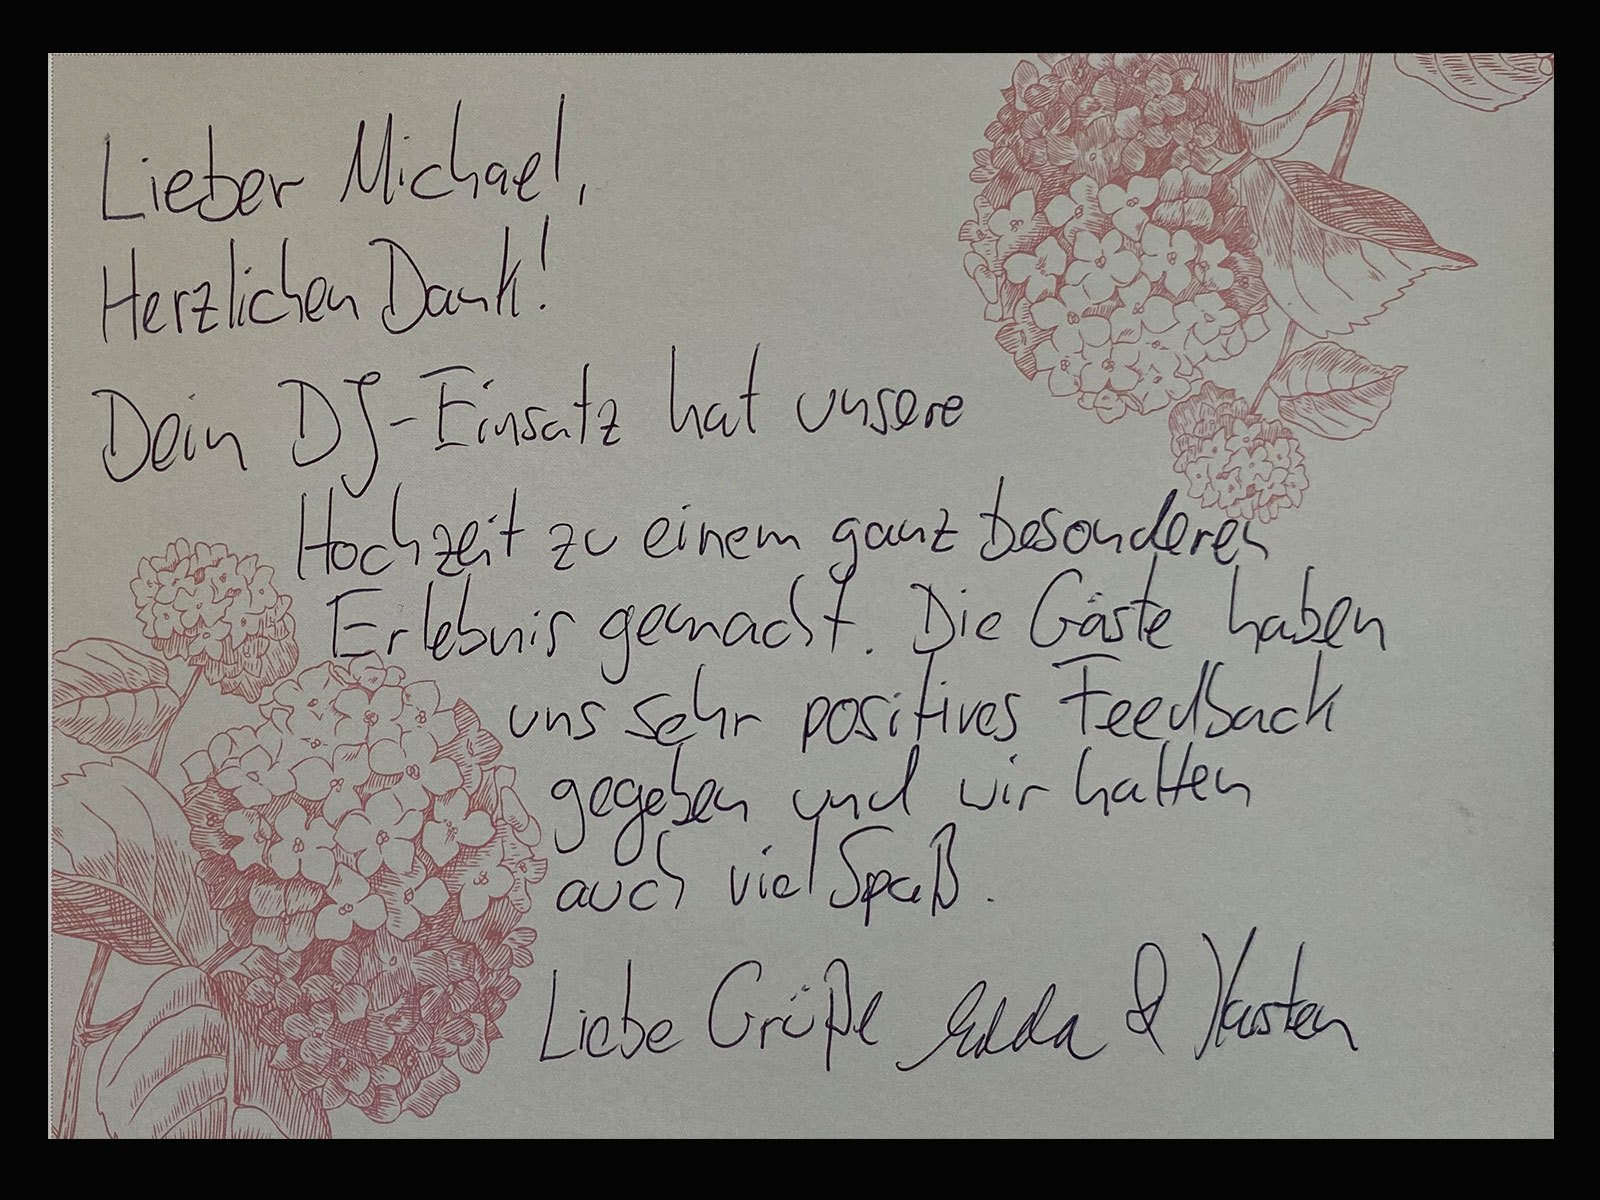 Lieber Michael,
Herzlichen Dank!
Dein DJ-Einsatz hat unsere
Hochzeit zu einem ganz besonderen
Erlebnis gemacht. Die Gäste haben
uns sehr positives Feedback
gegeben und wir hatten
auch viel Spaß.
Liebe Grüße Edda & Karsten